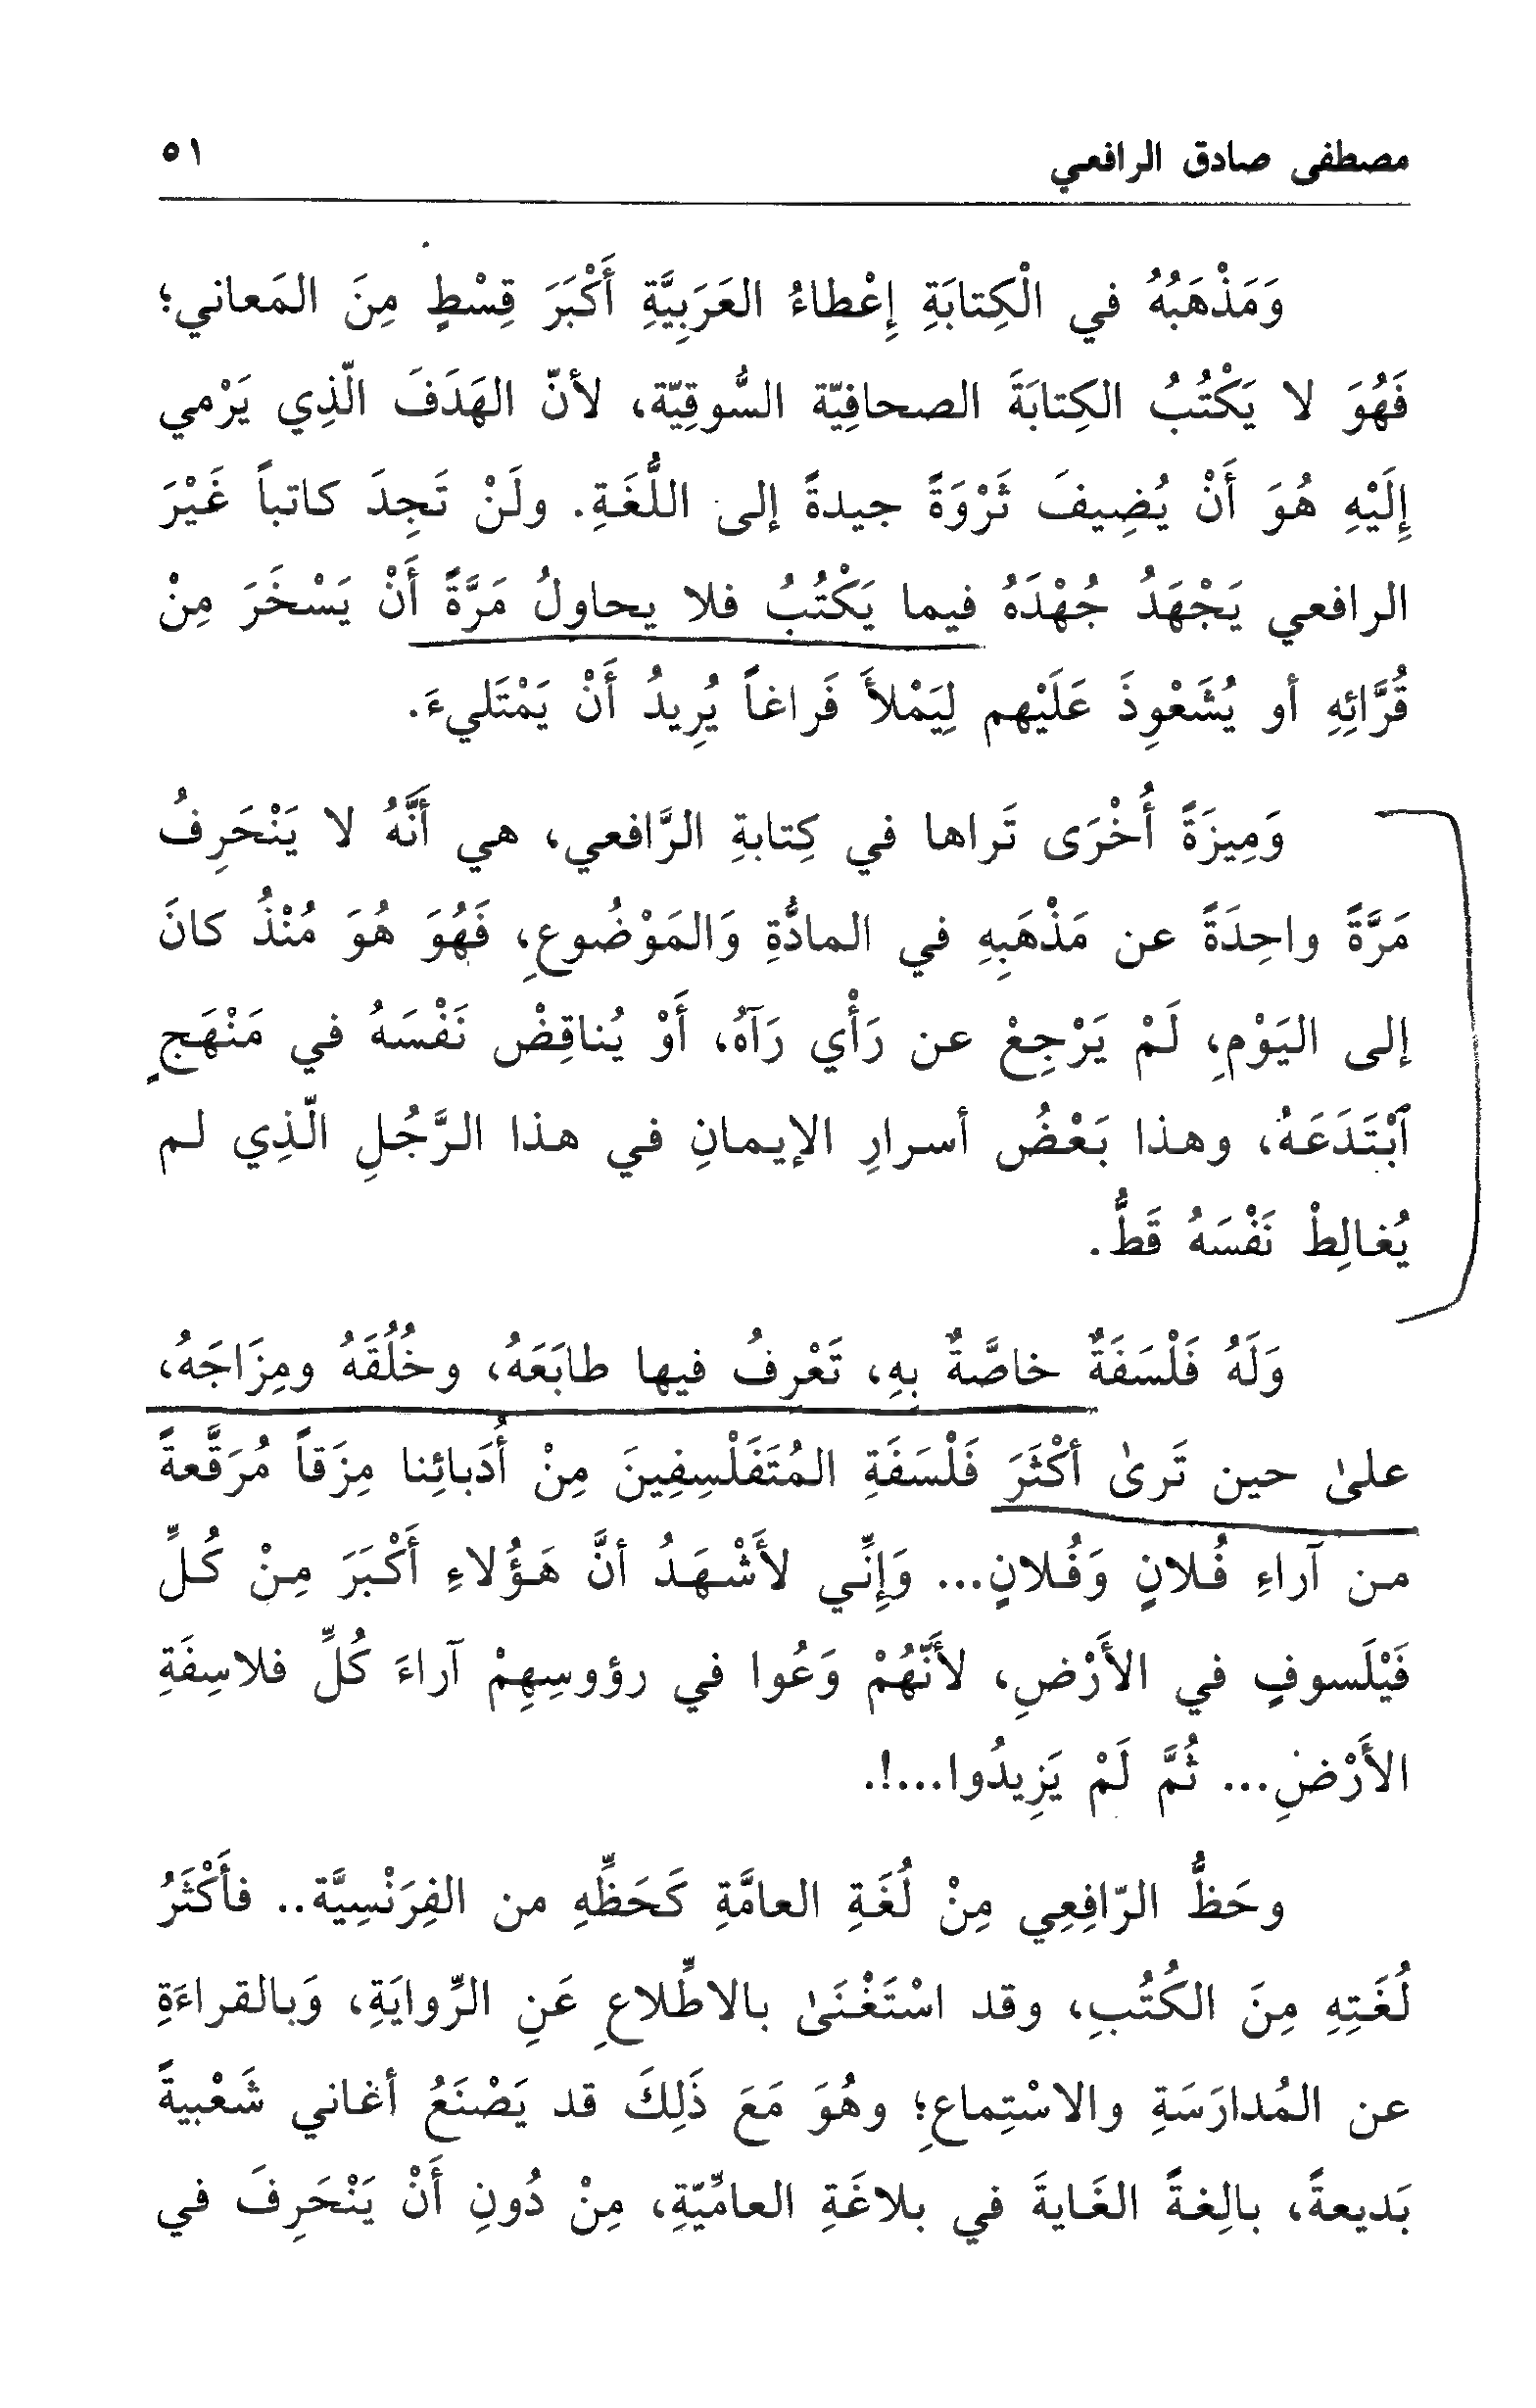 مصطفى صادق الرافعي ٥١
وَمَذْهَبُهُ في الْكِتابَةِ إِعْطاءُ العَرَبِيَّةِ أَكْبَرَ قِسْطٍ مِنَ المَعاني؛
فَهُوَ لا يَكْتُبُ الكِتابَةَ الصحافِيّة السُّوقِيّة، لأنّ الهَدَفَ الّذِي يَرْمي
إِلَيْهِ هُوَ أَنْ يُضِيفَ ثَرْوَةً جيدةً إلى اللُّغَةِ. ولَنْ تَجِدَ كاتباً غَيْرَ
الرافعي يَجْهَدُ جُهْدَهُ فيما يَكْتُبُ فلا يحاولُ مَرَّةً أَنْ يَسْخَرَ مِنْ
قُرَّائِهِ أو يُشَعْوِذَ عَلَيْهم لِيَمْلأَ فَراغاً يُرِيدُ أَنْ يَمْتَليءَ.
وَمِيزَةً أُخْرَى تَراها في كِتابةِ الرَّافعي، هي أَنَّهُ لا يَنْحَرِفُ
مَرَّةً واحِدَةً عن مَذْهَبِهِ في المادَّةِ وَالمَوْضُوعِ، فَهُوَ هُوَ مُنْذُ كانَ
إلى اليَوْمِ، لَمْ يَرْجِعْ عن رَأْي رَآهُ، أَوْ يُناقِضْ نَفْسَهُ في مَنْهَجٍ
ٱبْتَدَعَهُ، وهذا بَعْضُ أسرارِ الإيمانِ في هذا الرَّجُلِ الّذِي لم
يُغالِطْ نَفْسَهُ قَطُّ.
وَلَهُ فَلْسَفَةٌ خاصَّةٌ بِهِ، تَعْرِفُ فيها طابَعَهُ، وخُلُقَهُ ومِزَاجَهُ،
علىٰ حين تَرىٰ أكْثَرَ فَلْسَفَةِ المُتَفَلْسِفِينَ مِنْ أُدَبائِنا مِزَقاً مُرَقَّعةً
من آراءِ فُلانٍ وَفُلانٍ... وَإِنِّي لأَشْهَدُ أنَّ هَؤُلاءِ أَكْبَرَ مِنْ كُلِّ
فَيْلَسوفٍ في الأَرْضِ، لأَنَّهُمْ وَعُوا في رؤوسِهِمْ آراءَ كُلِّ فلاسِفَةِ
الأَرْضِ... ثُمَّ لَمْ يَزِيدُوا...!.
وحَظُّ الرّافِعِي مِنْ لُغَةِ العامَّةِ كَحَظِّهِ من الفِرَنْسِيَّة.. فأَكْثَرُ
لُغَتِهِ مِنَ الكُتُبِ، وقد اسْتَغْنَىٰ بالاطِّلاعِ عَنِ الرِّوايَةِ، وَبالقراءَةِ
عن المُدارَسَةِ والاسْتِماعِ؛ وهُوَ مَعَ ذَلِكَ قد يَصْنَعُ أغاني شَعْبيةً
بَديعةً، بالِغةً الغَايةَ في بلاغَةِ العامِّيّةِ، مِنْ دُونِ أَنْ يَنْحَرِفَ في